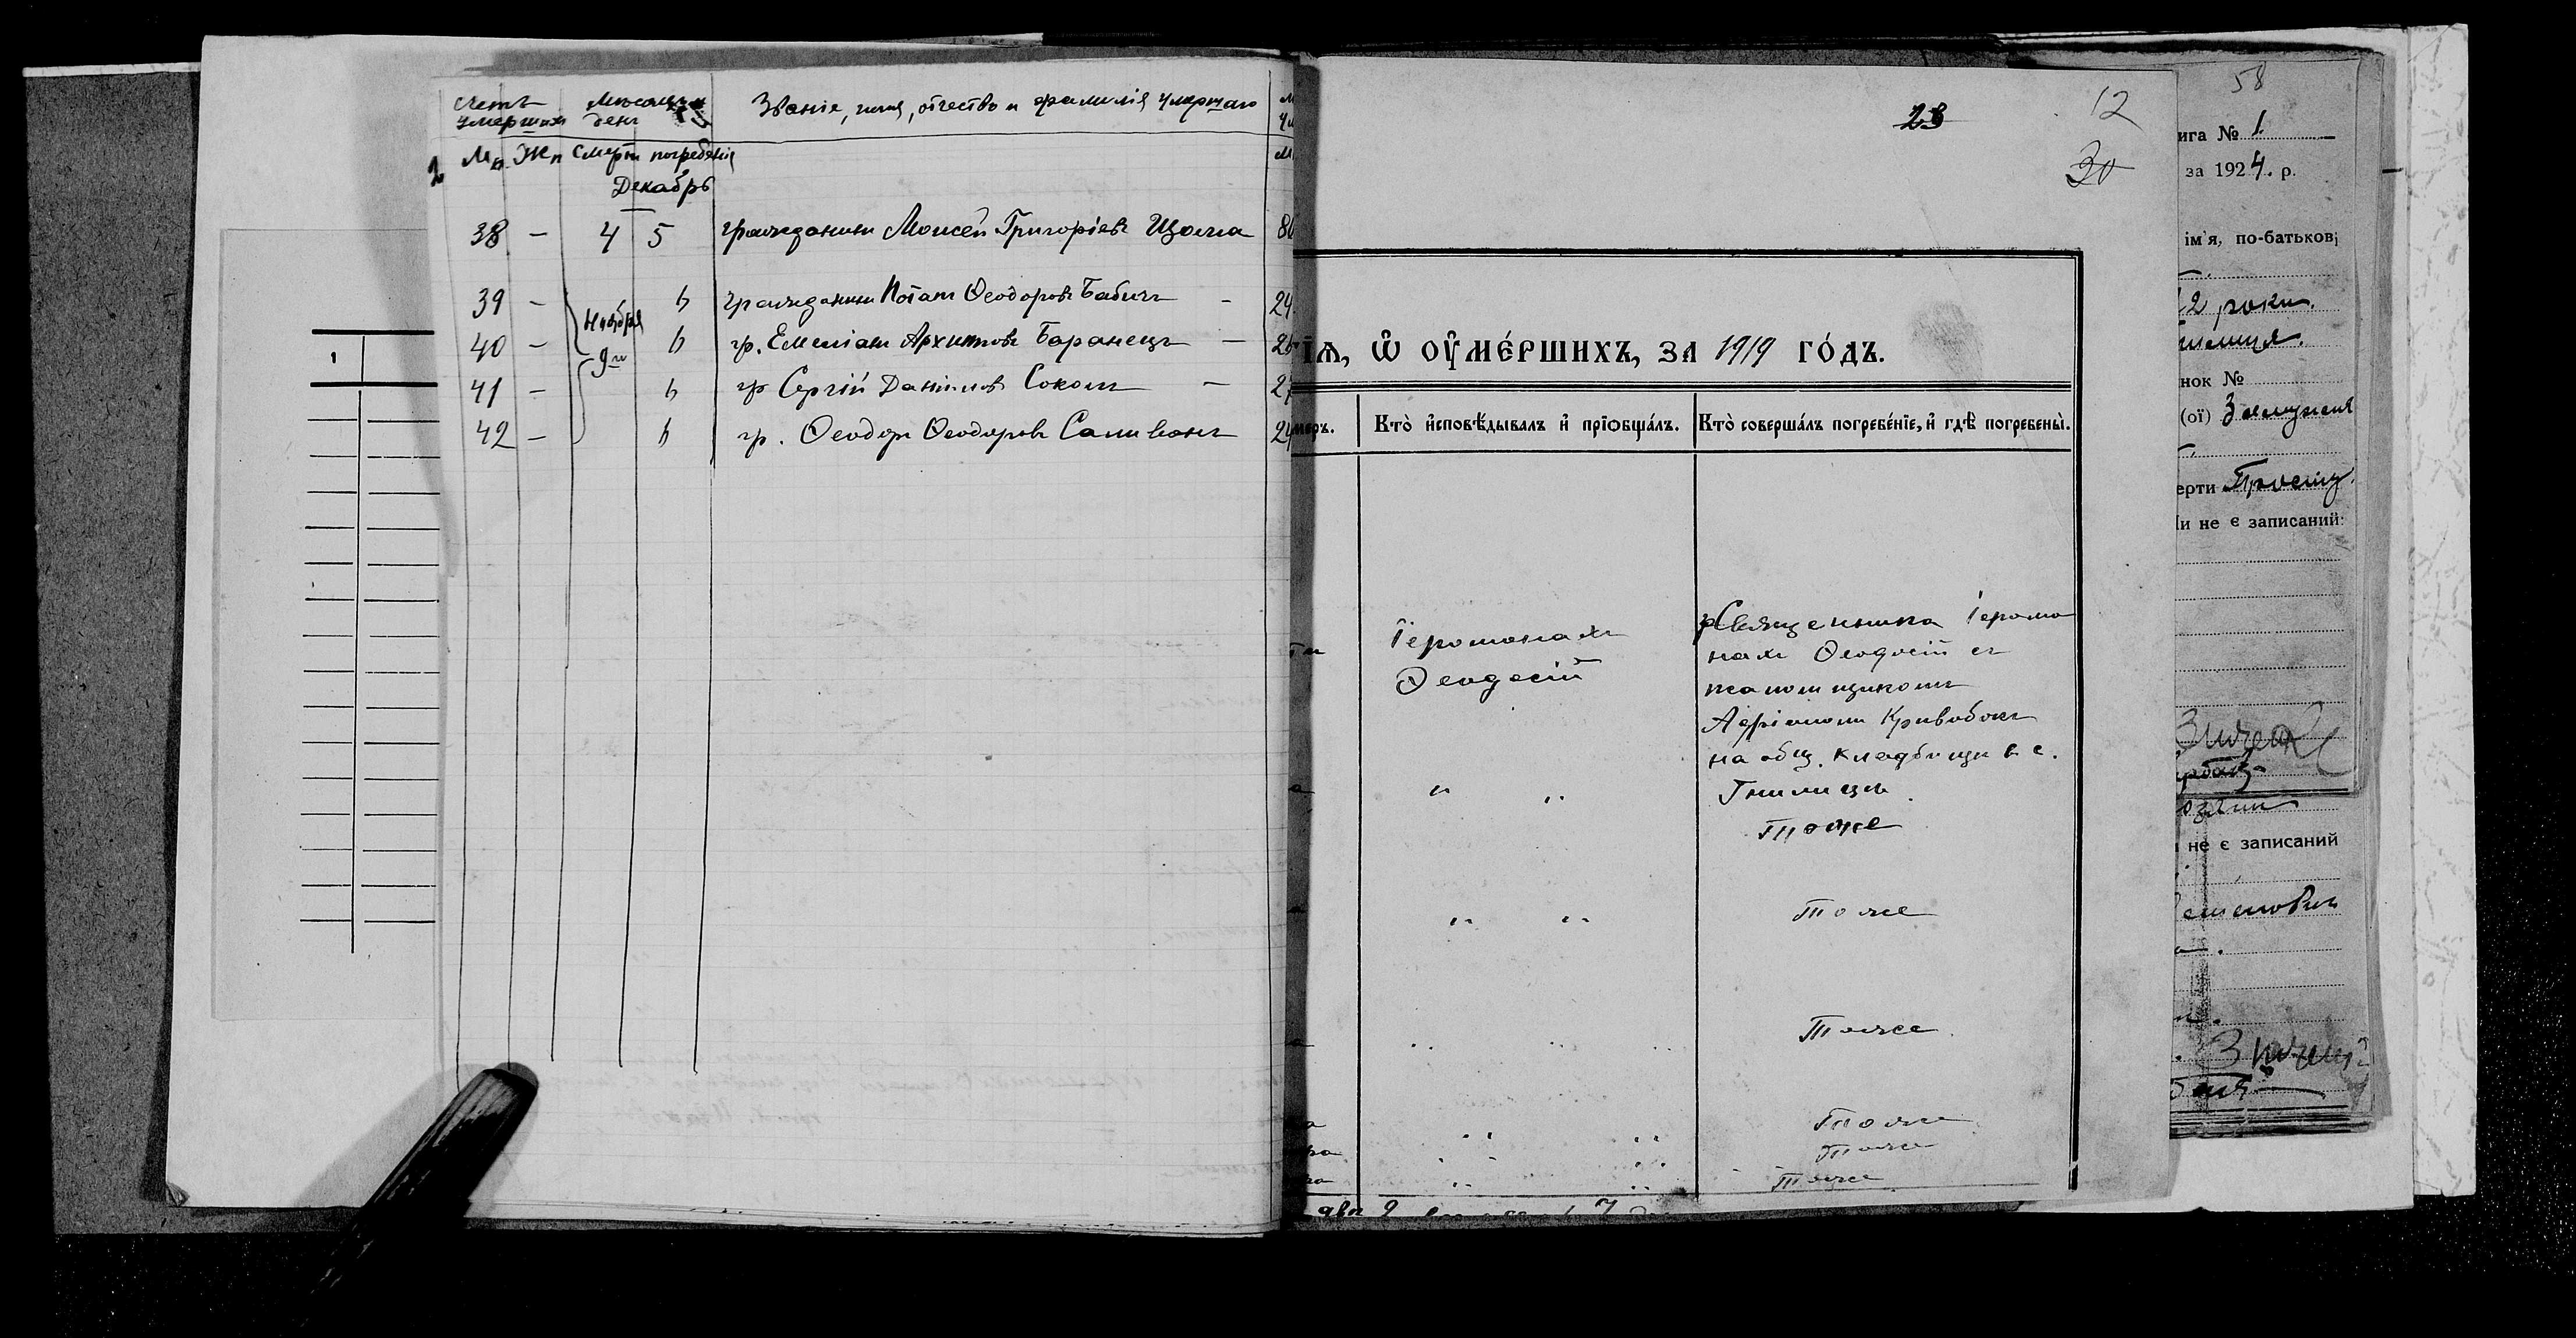 Счетъ умершихъ
Мѣсяцъ и день
Званіе, имя, отчество и фамилія умершаго
Мп. Жп Смерти погребенія
Декабрь
38 — 4 5 гражданинъ Моисей Григоріевъ Щома 80
39 — Ноября 6 гражданинъ Потапъ Ѳеодоровъ Бабичъ — 24
40 — 9го 6 гр. Емеліанъ Архиповъ Баранецъ — 26
41 — 6 гр Сергій Даніиловъ Соколъ — 27
42 — 6 гр. Ѳеодоръ Ѳеодоровъ Саливонъ 24
23
12
30
ІѦ, Ѿ ОУ҆МЕ́РШИХЪ, ЗА 1919 ГО́ДЪ.
меръ.
Кто̀ и҆сповѣ́дывалъ и҆ прїѡбща́лъ.
Кто̀ соверша́лъ погребе́нїе, и҆ гдѣ̀ погребены̀.
Іеромонахъ
Ѳеодосій
Священника Іеромо
нахъ Ѳеодосій съ
псаломщикомъ
Адріаномъ Кривобокъ
на общ. кладбищи в с.
Гнилицѣ
" "
тоже
" " тоже
" " тоже
" " тоже
" " тоже
" " тоже
58
ига № 1
за 1924. р.
ім'я, по-батькові
2 роки.
нок №
(ої)
ерти
и не є записаний:
не є записаний